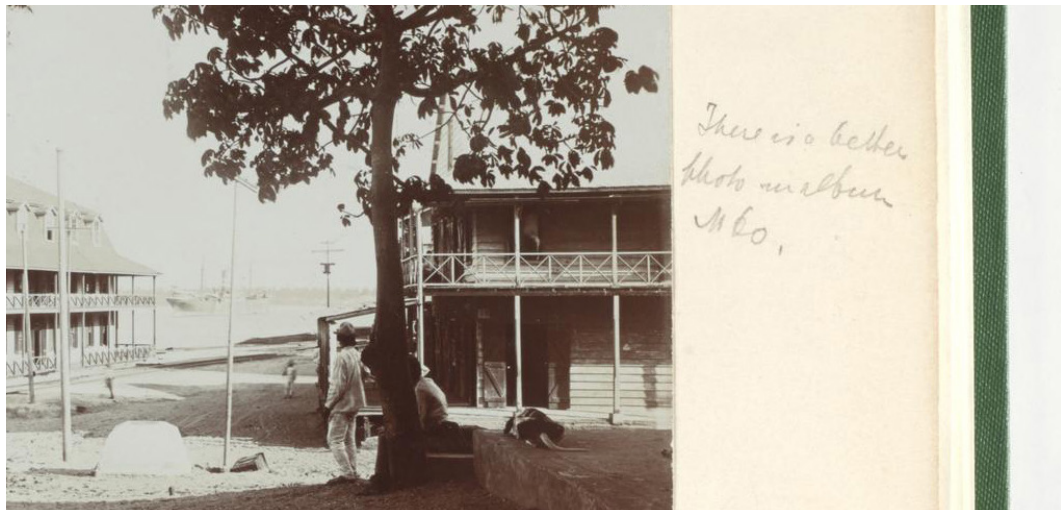 There is a better
photo in album
M Co.